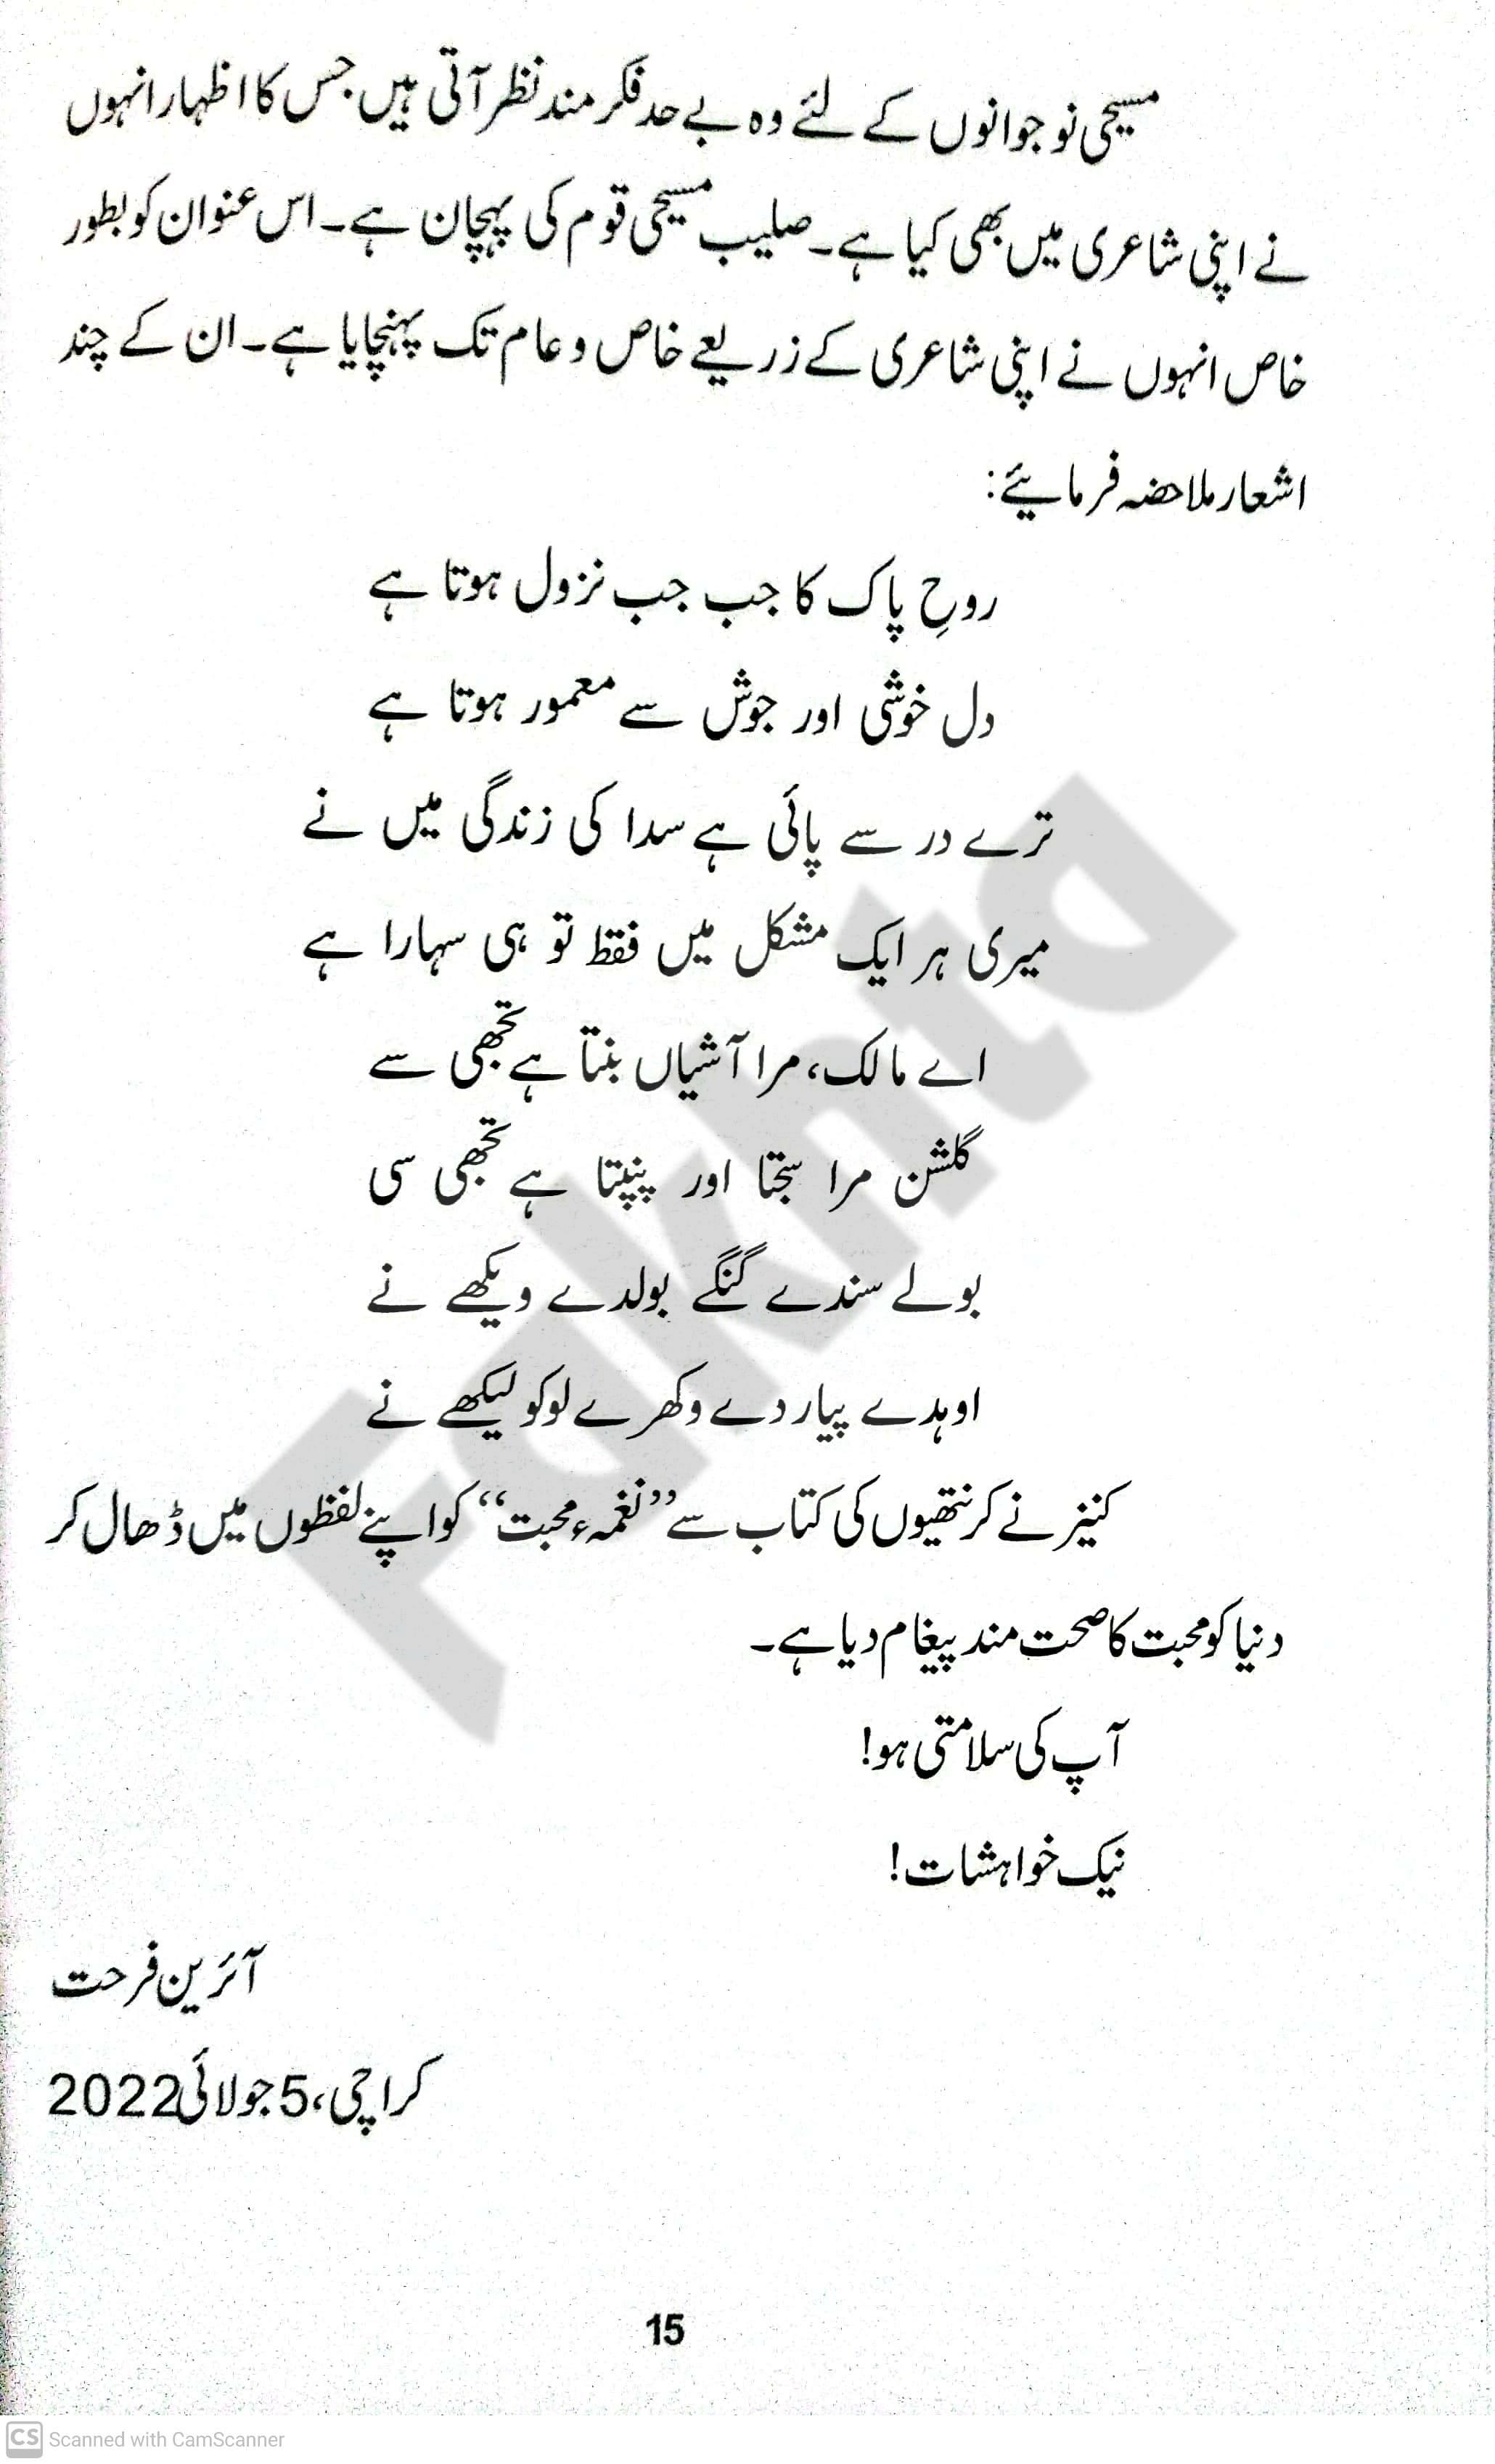 مسیحی نوجوانوں کے لئے وہ بے حد فکر مند نظر آتی ہیں جس کا اظہار انہوں
نے اپنی شاعری میں بھی کیا ہے۔ صلیب مسیحی قوم کی پہچان ہے۔ اس عنوان کو بطور
خاص انہوں نے اپنی شاعری کے زریعے خاص و عام تک پہنچایا ہے۔ ان کے چند
اشعار ملاحضہ فرمایئے:
روحِ پاک کا جب جب نزول ہوتا ہے
دل خوشی اور جوش سے معمور ہوتا ہے
ترے در سے پائی ہے سدا کی زندگی میں نے
میری ہر ایک مشکل میں فقط تو ہی سہارا ہے
اے مالک، مرا آشیاں بنتا ہے تجھی سے
گلشن مرا سجتا اور پنپتا ہے تجھی سی
بولے سندے گنگے بولدے ویکھے نے
اوہدے پیار دے وکھرے لوکو لیکھے نے
کنیز نے کرنتھیوں کی کتاب سے ’’نغمہء محبت‘‘ کو اپنے لفظوں میں ڈھال کر
دنیا کو محبت کا صحت مند پیغام دیا ہے۔
آپ کی سلامتی ہو!
نیک خواہشات!
آئرین فرحت
کراچی، 5 جولائی 2022
15
Fakhta
CS Scanned with CamScanner